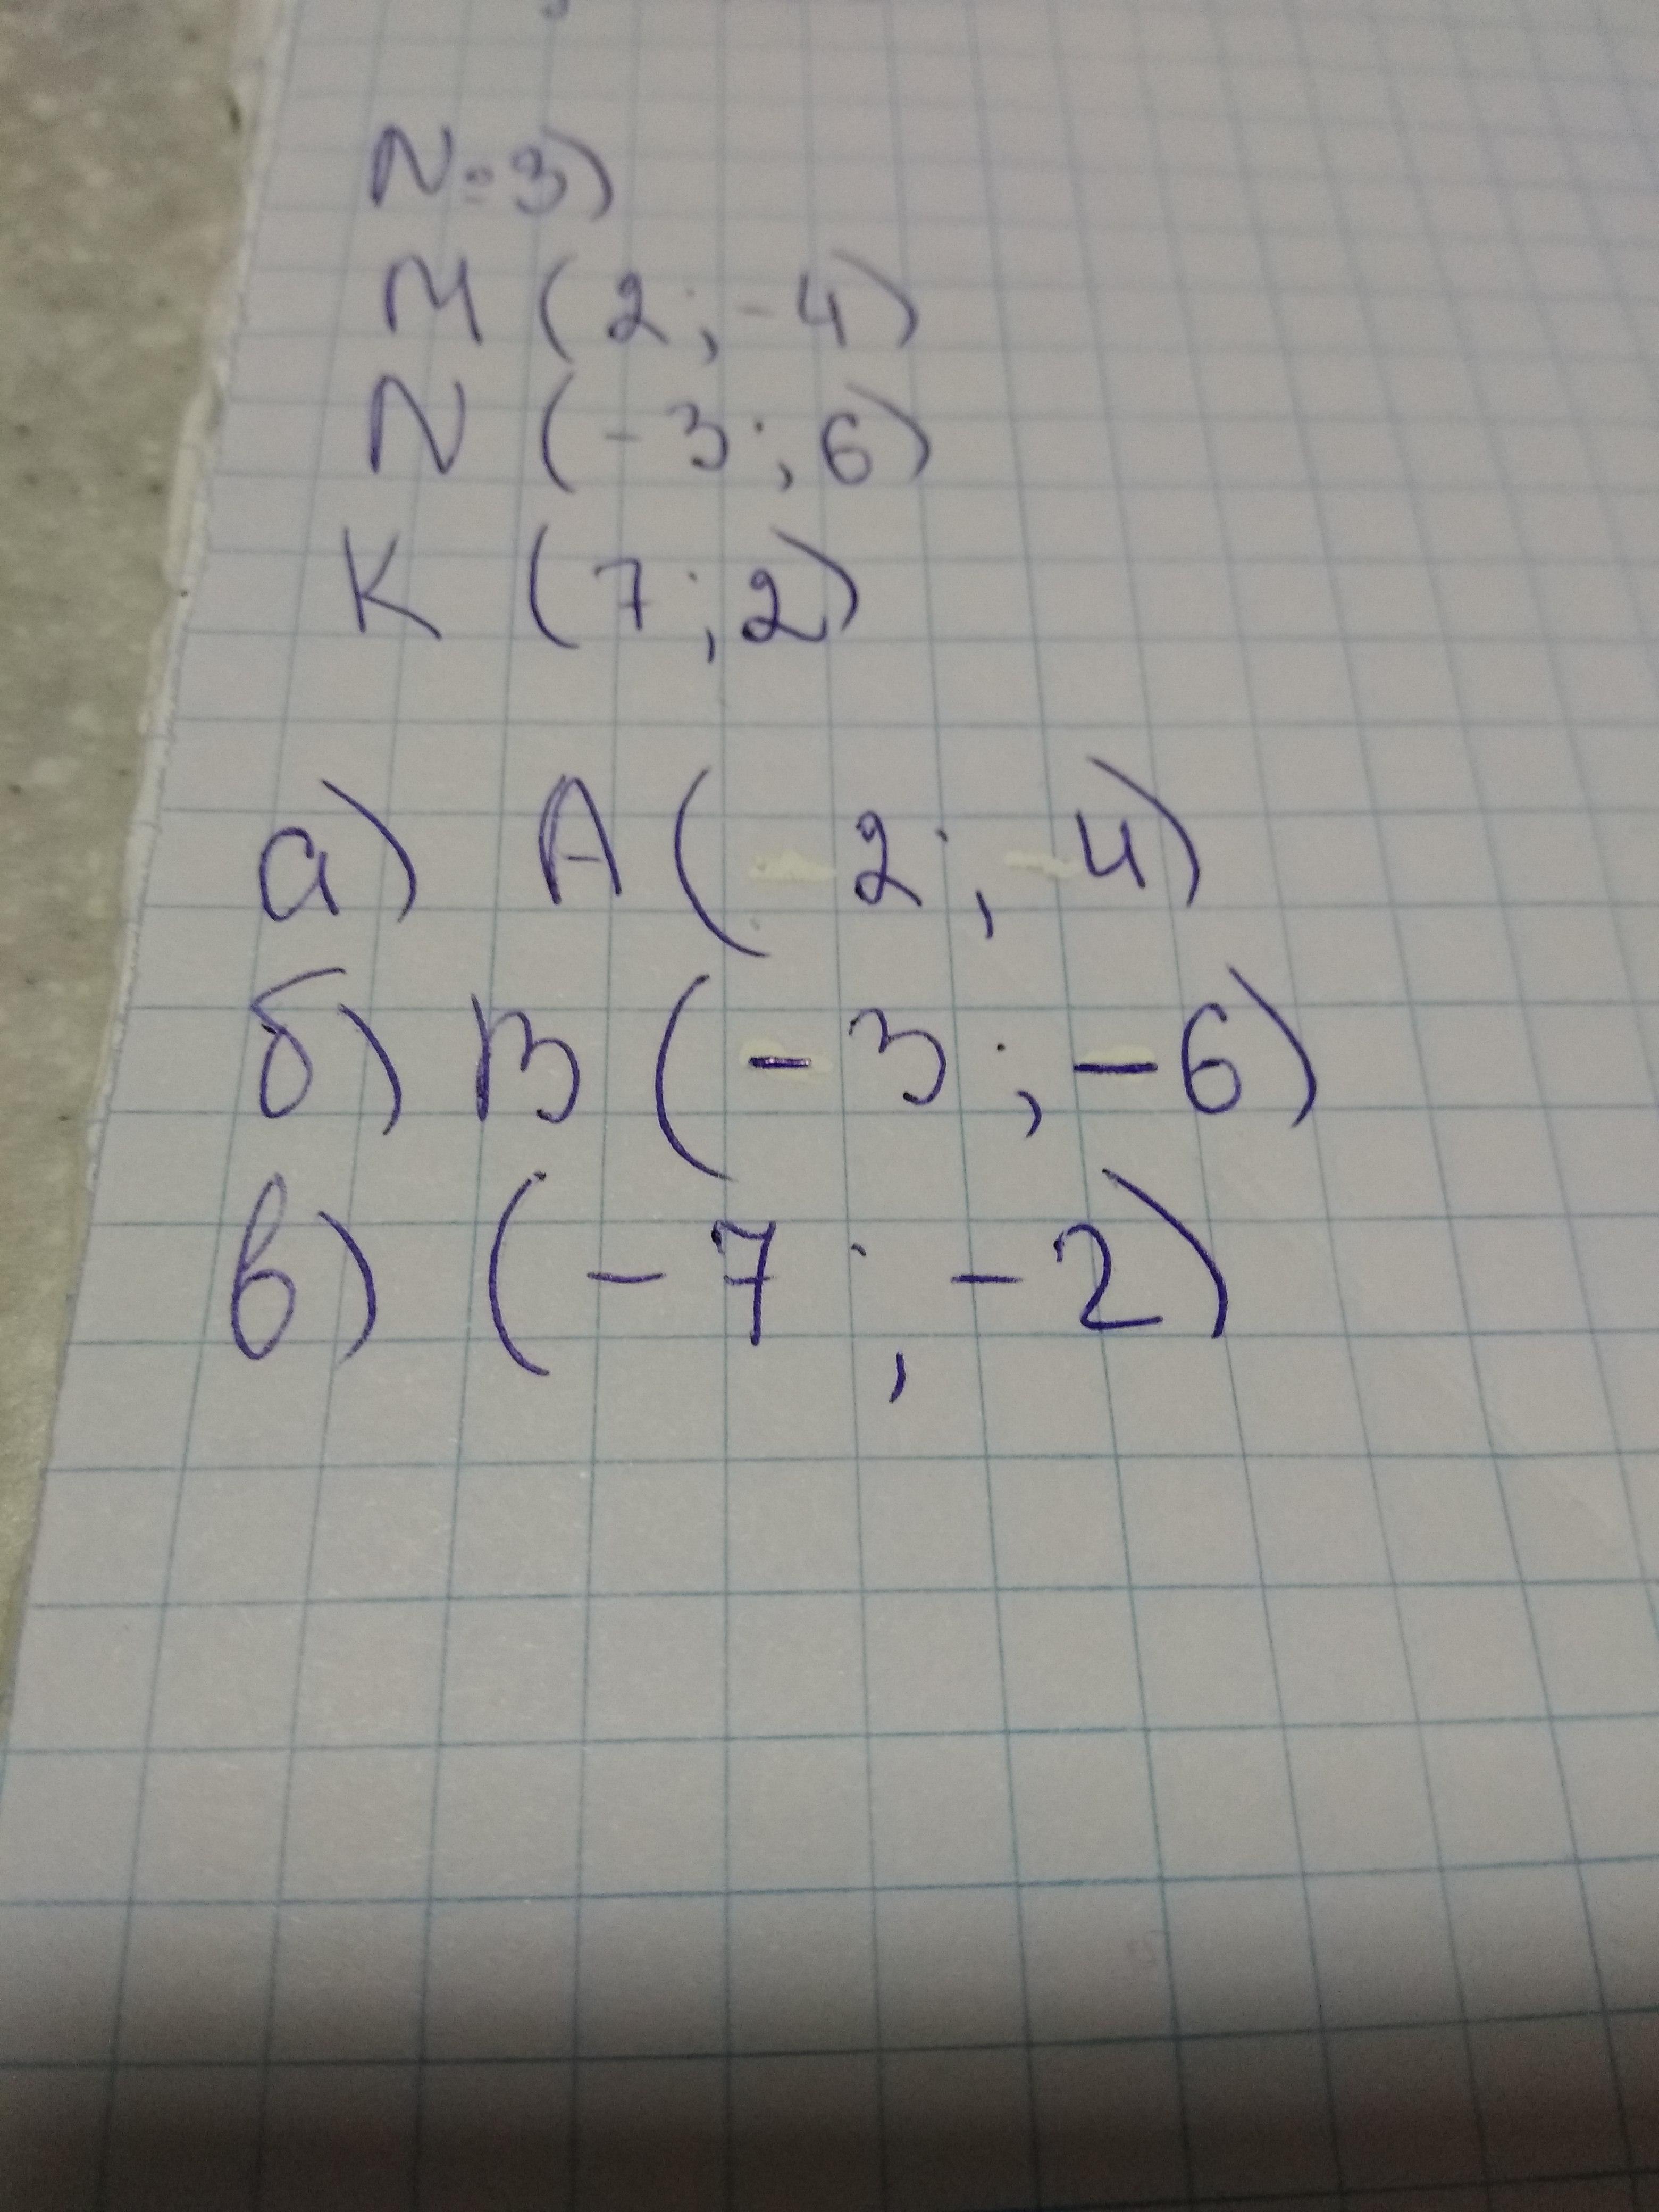 N=3)
М (2; -4)
N (-3; 6)
К (7; 2)
а) А ( 2; 4)
б) В (-3; -6)
в) (-7; -2)